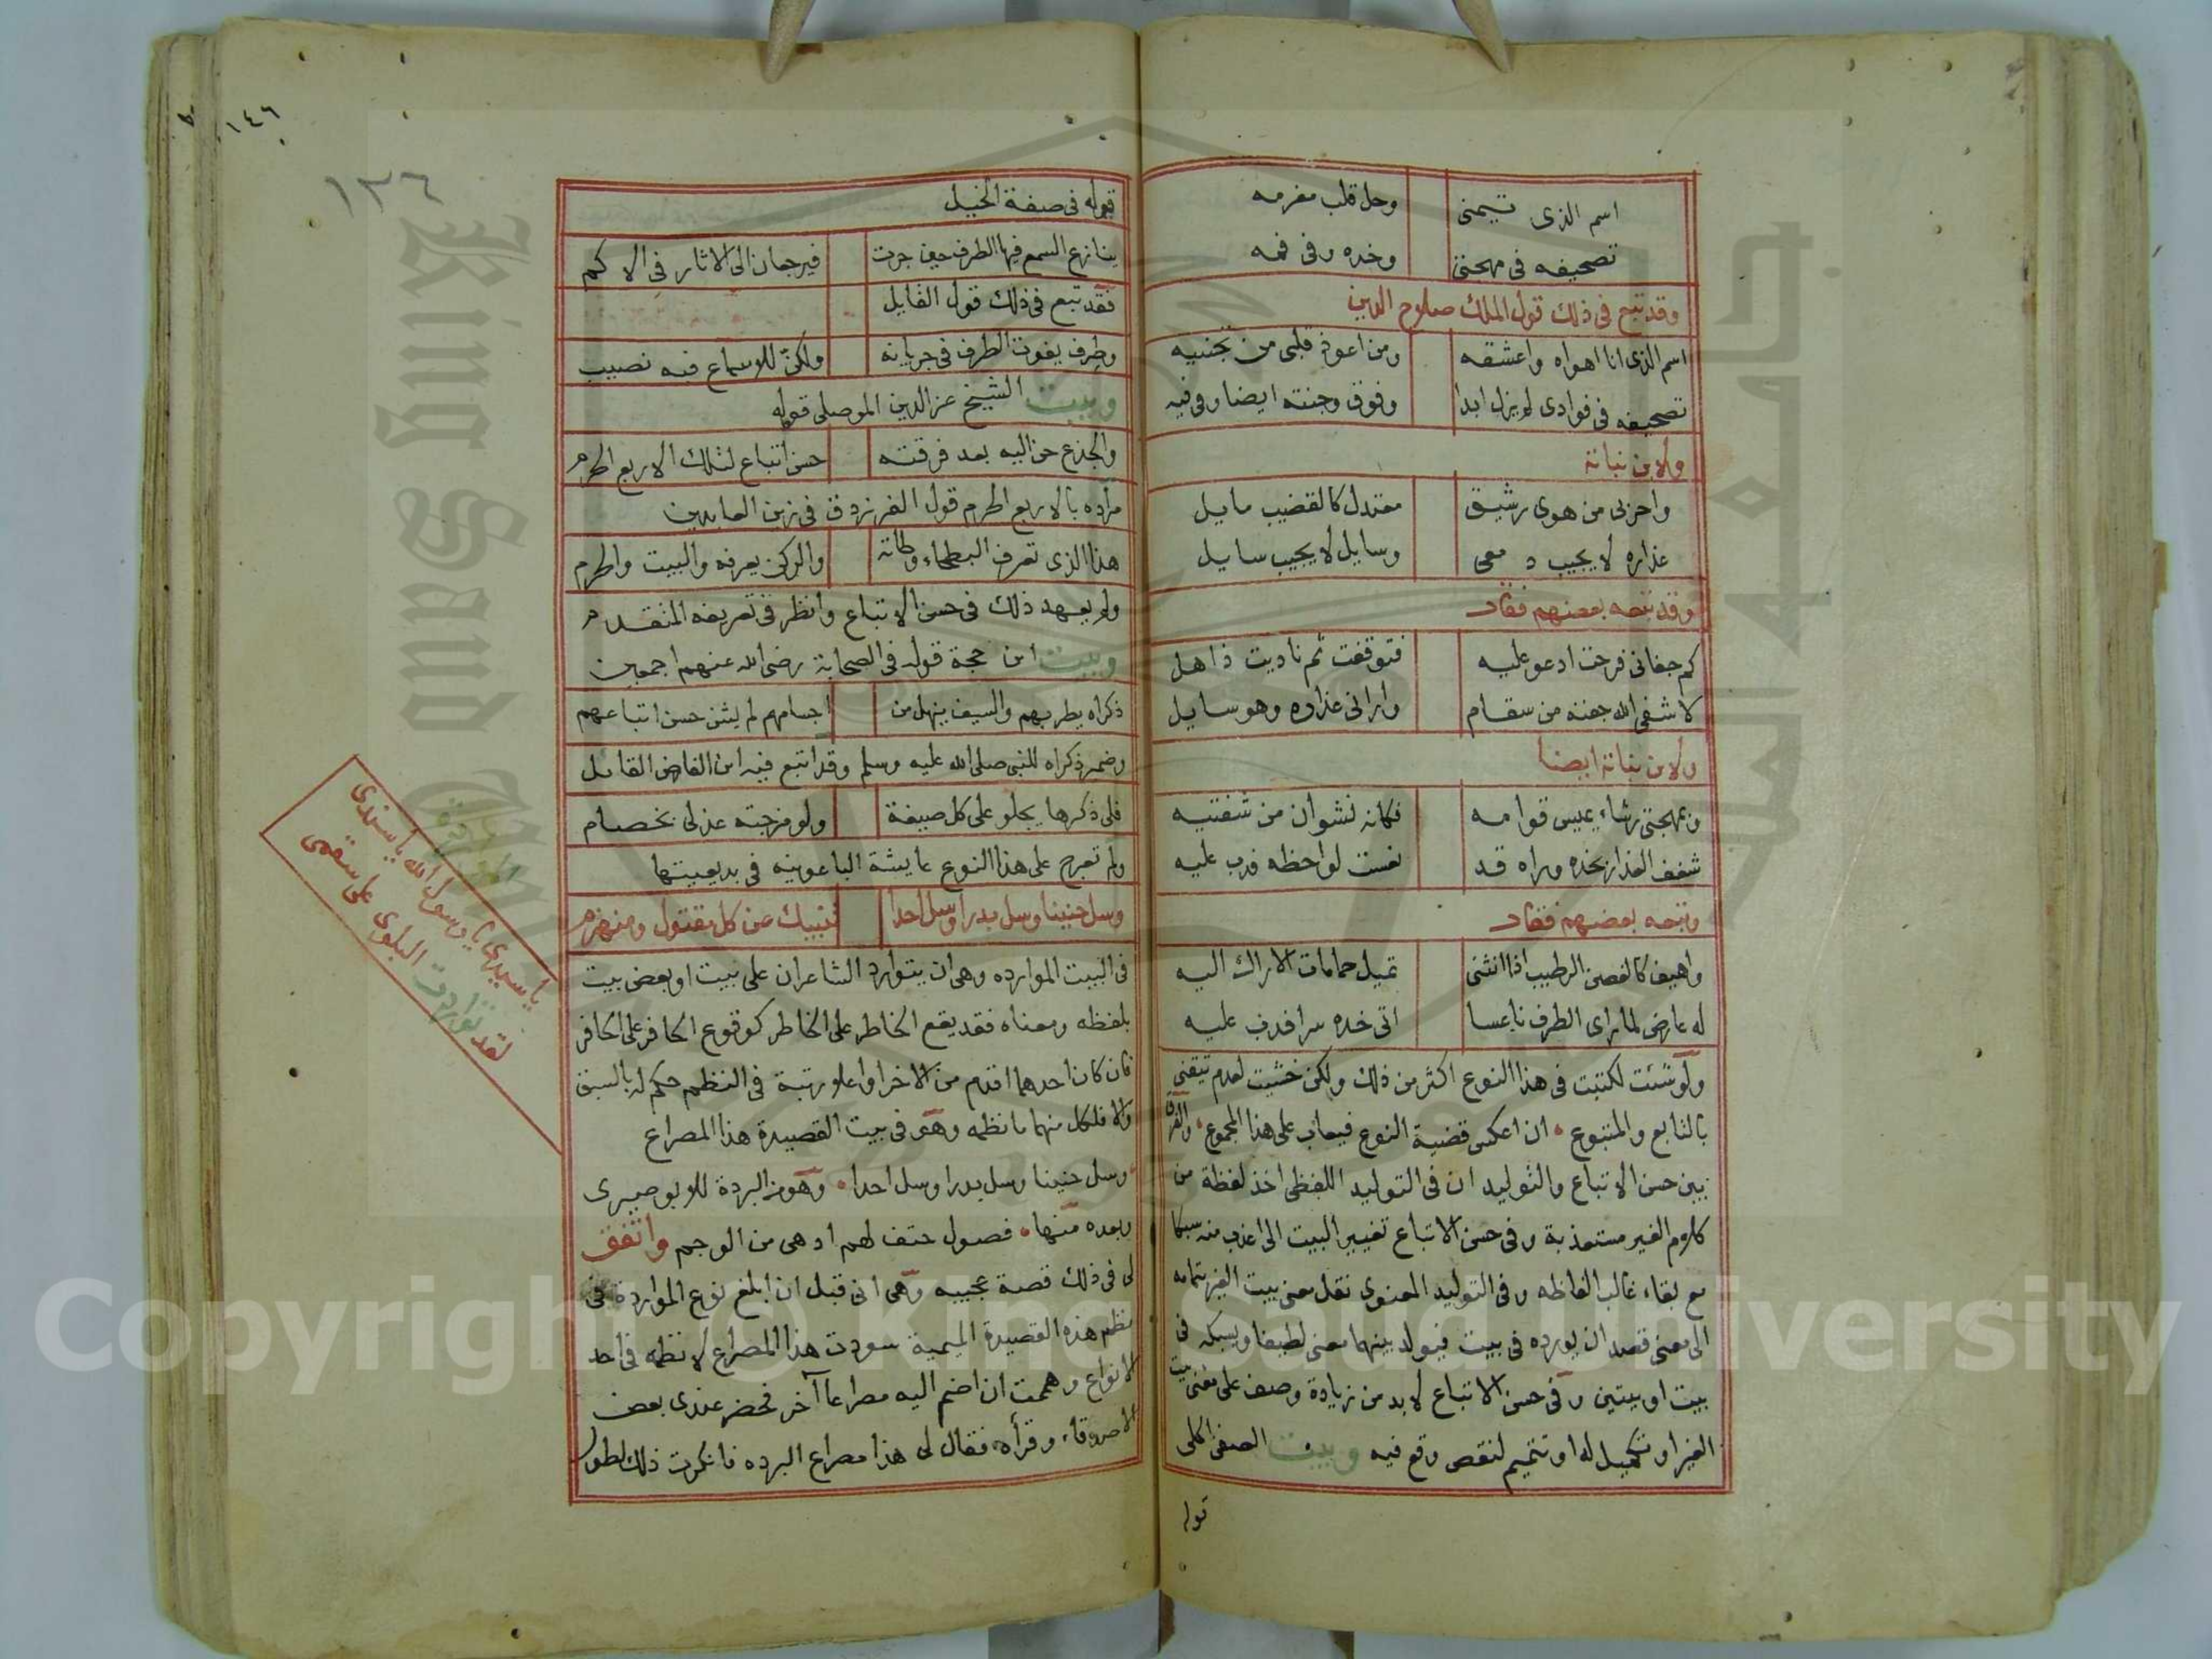 اسم الذى تيمنى وحل قلب مغرمه
تصحيفه فى مهجتى وخده وفى فمه
وقد تبع فى ذلك قول الملك صلاح الدين
اسم الذى انا اهواه واعشقه ومن اعوذ قلبى من تجنبيه
تصحيفه فى فوادى لم يزل ابدا وفوق وجنته ايضا وفى فيه
ولابن نباتة
واحزنى من هوى رشيق معتدل كالقضيب مايل
عذاره لا يجيب دمعى وسايل لا يجيب سايل
وقد تبعه بعضهم فقال
كم جفانى فرحت ادعو عليه فتوقفت ثم ناديت ذاهل
لا شفى الله جفنه من سقام وارانى عذاره وهو سايل
ولابن نباتة ايضا
وبمهجتى رشاء يميس قوامه فكانه نشوان من شفتيه
شغف العذار بخده وراه قد نعست لواحظه فدب عليه
وتبعه بعضهم فقال
واهيف كالغصن الرطيب اذا انثنى تميل حمامات الاراك اليه
له عارض لما راى الطرف ناعسا اتى خده سرا فدب عليه
ولو شئت لكتبت فى هذا النوع اكثر من ذلك ولكن خشيت لعدم تيقنى
بالتابع والمتبوع ان اعكس قضية النوع فيعاب على هذا المجموع والفرق
بين حسن الاتباع والتوليد ان فى التوليد اللفظى اخذ لفظة من
كلام الغير مستعذبة وفى حسن الاتباع تغيير البيت الى اعذب منه سبكا
مع بقاء غالب الفاظه وفى التوليد المعنوى نقل معنى بيت الغير بتمامه
الى معنى قصد ان يورده فى بيت فيولد بينهما معنى لطيفا ويسبكه فى
بيت او بيتين وفى حسن الاتباع لابد من زيادة وصف على معنى بيت
الغير او تكميل له او تتميم لنقص وقع فيه وبيت الصفى الحلى
قوله
١٤٦
١٢٦
قوله فى صفة الخيل
ينازع السمع فيها الطرف حين جرت فيرجعان الى الاثار فى الاكم
فقد تبع فى ذلك قول القايل
وطرف يفوت الطرف فى جريانه ولكن للاسماع فيه نصيب
وبيت الشيخ عز الدين الموصلى قوله
والجذع حن اليه بعد فرقته حسن اتباع لتلك الاربع الحرم
مراده بالاربع الحرم قول الفرزدق فى زين العابدين
هذا الذى تعرف البطحاء وطاته والركن يعرفه والبيت والحرم
ولم يعهد ذلك فى حسن الاتباع وانظر فى تعريفه المتقدم
وبيت ابن حجة قوله فى الصحابة رضى الله عنهم اجمعين
ذكراه يطربهم والسيف ينهل من اجسامهم لم يشن حسن اتباعهم
وضمير ذكراه للنبى صلى الله عليه وسلم وقد اتبع فيه ابن الفارض القايل
فلى ذكرها يحلو على كل صيغة ولو مزجته عذلى بخصام
ولم تعرج على هذا النوع عايشة الباعونية فى بديعيتها
وسل حنينا وسل بدرا وسل احدا تنبيك عن كل مقتول ومنهزم
فى البيت المواردة وهى ان يتوارد الشاعران على بيت او بعض بيت
بلفظه ومعناه فقد يقع الخاطر على الخاطر كوقوع الحافر على الحافر
فان كان احدهما اقدم من الاخر او اعلا رتبة فى النظم حكم له بالسبق
والا فلكل منهما ما نظمه وهو فى بيت القصيدة هذا المصراع
وسل حنينا وسل بدرا وسل احدا وهو من البردة للابوصيرى
وبعده منها فصول حتف لهم ادهى من الوجم واتفق
لى فى ذلك قصة عجيبه وهى انى قبل ان ابلغ نوع المواردة فى
نظم هذه القصيدة الميمية سودت هذا المصراع لانظمه فى احد
الانواع وهممت ان اضم اليه مصراعا آخر فحضر عندى بعض
الاصدقاء وقرأه فقال لى هذا مصراع البرده فانكرت ذلك لطول
المواردة
يا سيدى يا رسول الله يا سندى
لقد تواردت البلوى على سقمى
King Saud University
Copyright © King Saud University